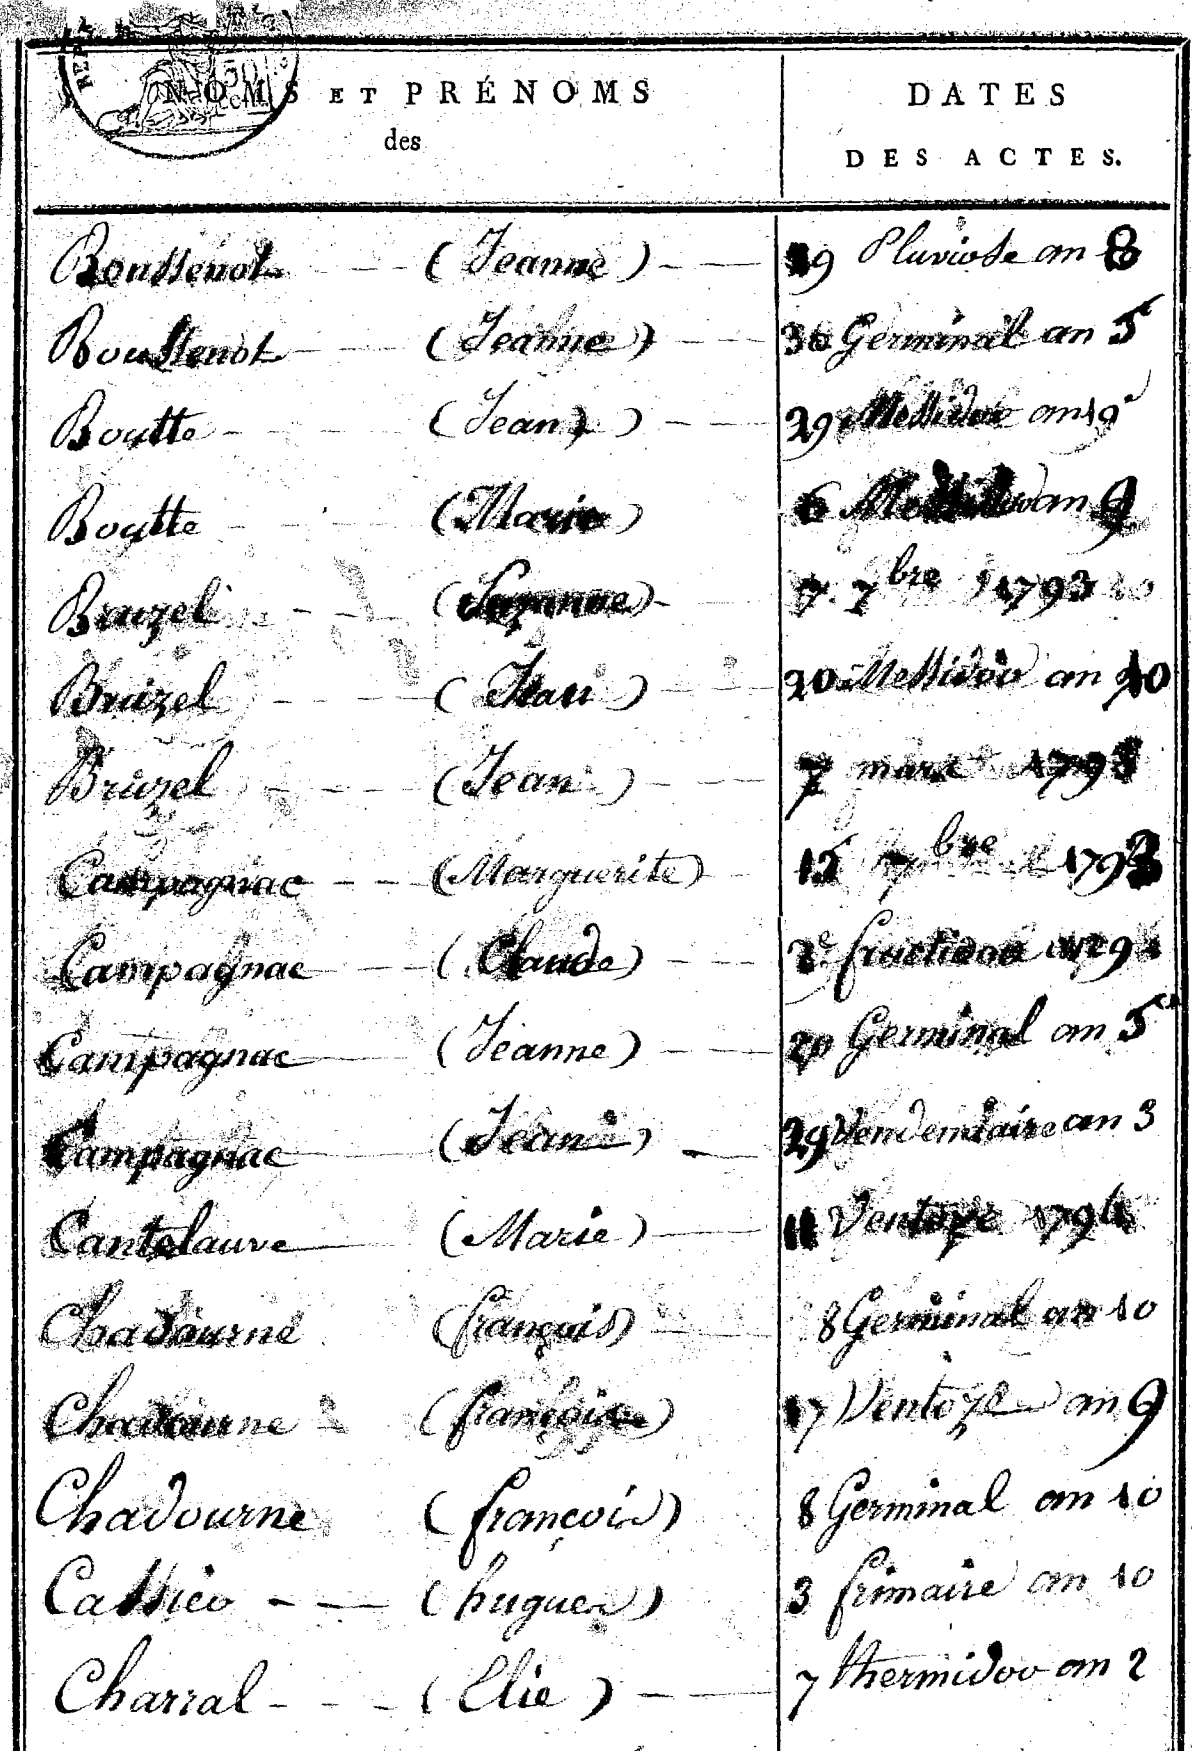 NOMS ET PRÉNOMS DATES
des DES ACTES.
Boussenot (Jeanne) 19 Pluviose an 8
Boussenot (Jeanne) 30 Germinal an 5
Boutte (Jean) 29 Messidor an 19
Boutte (Marie) 6 Messidor an 9
Bruzel (Suzanne) 7 7bre 1793
Bruzel (Jean) 20 Messidor an 10
Bruzel (Jean) 7 mars 1793
Campagnac (Marguerite) 15 7bre 1793
Campagnac (Claude) fructidor
Campagnac (Jeanne) 20 Germinal an 5
Campagnac (Jean) 29 Vendemiaire an 3
Cantelauve (Marie) 11 Ventoze 1794
Chadourne (françois) 8 Germinal an 10
Chadourne (françoise) 17 Ventoze an 9
Chadourne (françois) 8 Germinal an 10
Cassieu (hugues) 3 frimaire an 10
Charral (Elie) 7 thermidor an 2